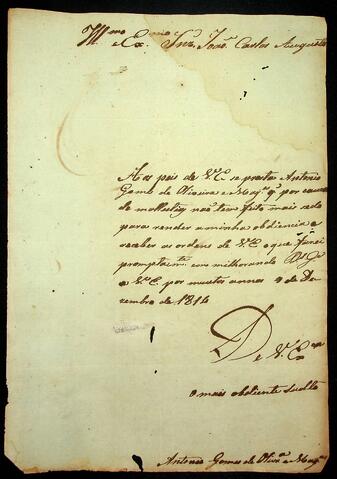 Illmo e Exmo Snr. João Carlos Augusto
Aos pes de V.E. se prosta Antonio
Gomes de Oliveira e Mag.es q. por causa
de molestia não tem feito mais sedo
para render a minha obdiencia a
receber as ordens de V.E. o que farei
promptam.te em milhorando D.s G.e
a V.E. por muitos annos 9 de De-
zembro de 1814
De V. Exa
o mais obdiente sudito
Antonio Gomes de Olivra e Mag.es